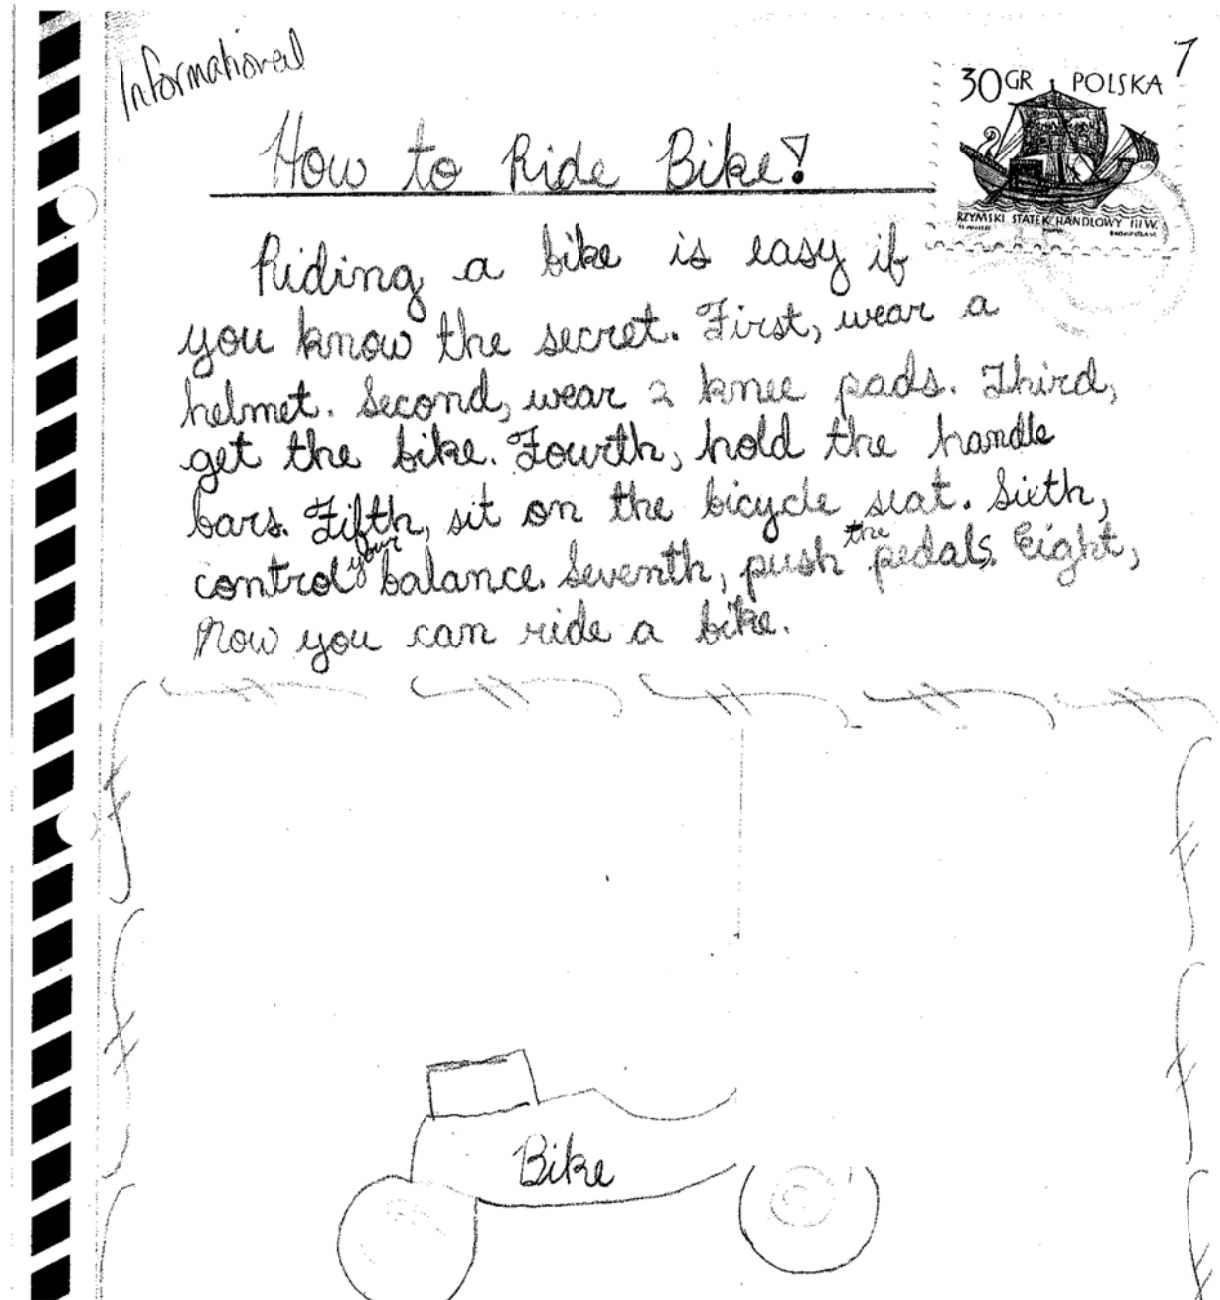 Informational
7
30GR POLSKA
How to Ride Bike!
RZYMSKI STATEK HANDLOWY III W.
Riding a bike is easy if
you know the secret. First, wear a
helmet. Second, wear 2 knee pads. Third,
get the bike. Fourth, hold the handle
bars. Fifth, sit on the bicycle seat. Sixth,
control your balance. Seventh, push the pedals. Eight,
Now you can ride a bike.
Bike